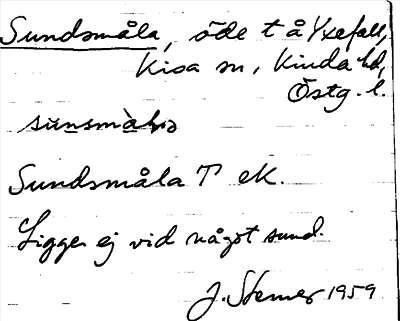 Sundsmåla, öde t å Yxefall,
Kisa sn, Kinda hd,
Östg. l.
Sundsmåla T eK.
Ligger ej vid något sund.
J. Stemer 1959